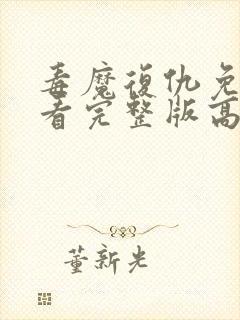 毒魔復仇免
看完整版高
董新光